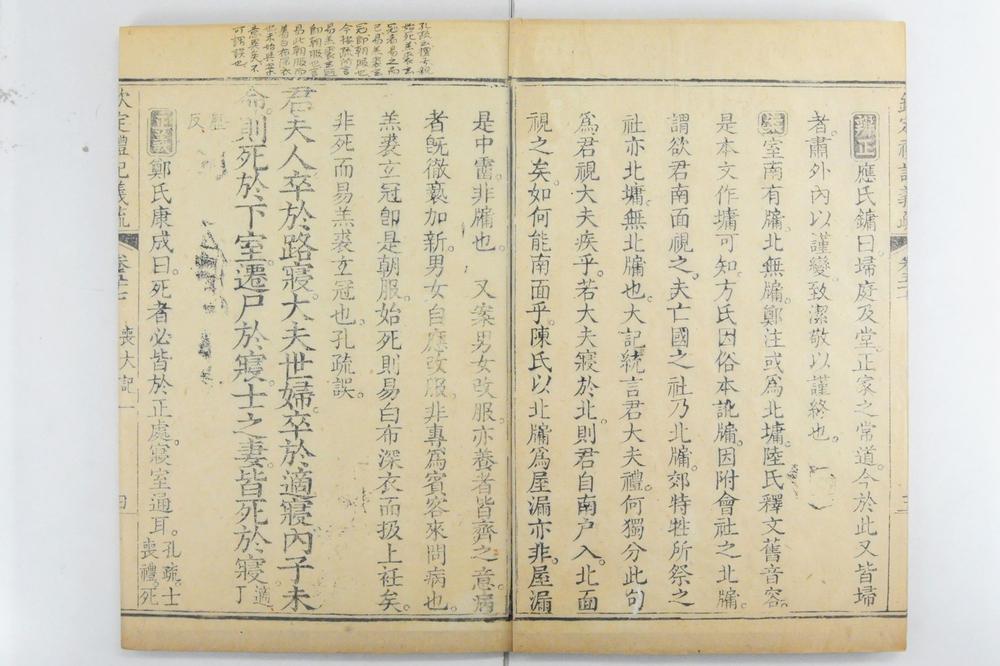 辨正應氏鏞曰埽庭及堂正家之常道今於此又皆埽
者肅外內以謹變致潔敬以謹終也
案室南有牖北無牖鄭注或為北墉陸氏釋文舊音容
是本文作墉可知方氏因俗本訛牖因附會社之北牖
謂欲君南面視之夫亡國之社乃北牖郊特牲所祭之
社亦北墉無北牖也大記統言君大夫禮何獨分此句
為君視大夫疾乎若大夫寢於北則君自南戶入北面
視之矣如何能南面乎陳氏以北牖為屋漏亦非屋漏
是中霤非牖也 又案男女改服亦養者皆齊之意病
者旣徹褻加新男女自應改服非專為賓客來問病也
羔裘玄冠卽是朝服始死則易白布深衣而扱上衽矣
非死而易羔裘玄冠也孔疏誤
君夫人卒於路寢大夫世婦卒於適寢內子未
命則死於下室遷尸於寢士之妻皆死於寢適丁
反
正義鄭氏康成曰死者必皆於正處寢室通耳孔疏士喪禮死
欽定禮記義疏 卷五十七 喪大記一 四